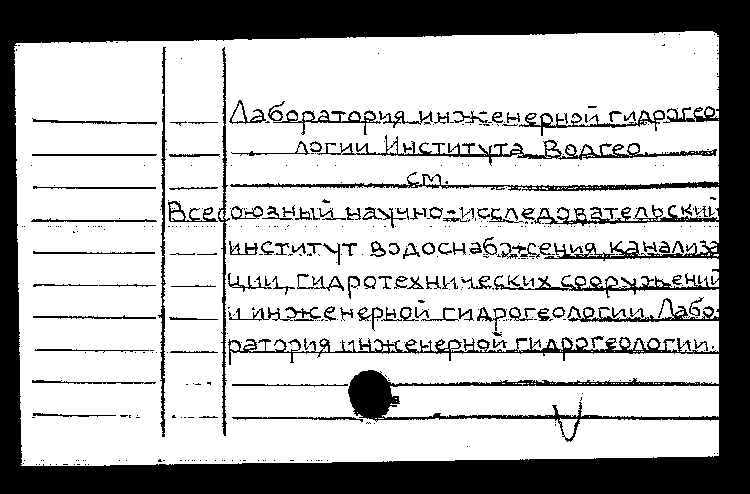 Лаборатория инженерной гидрогео-
логии Института Водгео.
см.
Всесоюзный научно-исследовательский
институт водоснабжения, канализа-
ции, гидротехнических сооружений
и инженерной гидрогеологии. Лабо-
ратория инженерной гидрогеологии.